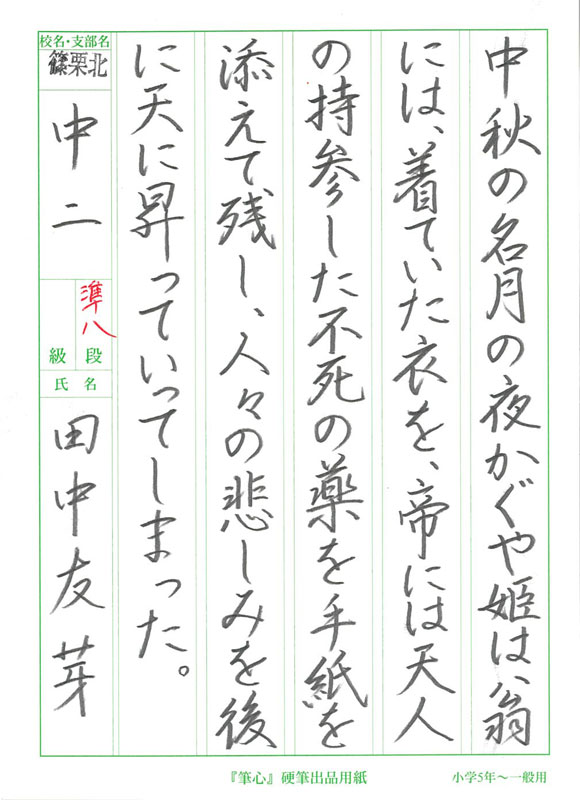 中秋の名月の夜かぐや姫は、翁
には、着ていた衣を、帝には天人
の持参した不死の薬を手紙を
添えて残し、人々の悲しみを後
に天に昇っていってしまった。
校名・支部名
篠栗北
中二
準八
段
級
氏名
田中友芽
『筆心』硬筆出品用紙
小学5年〜一般用